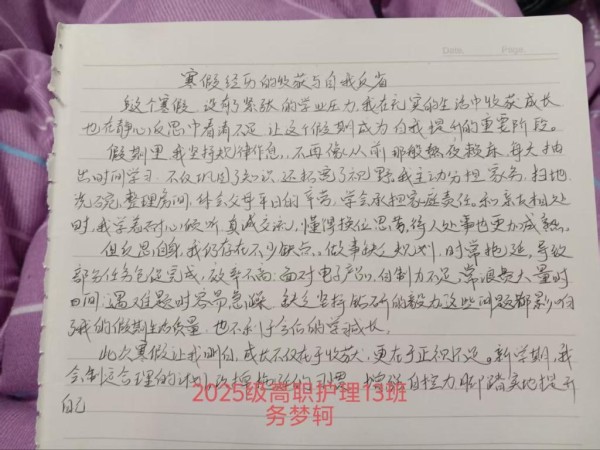 Date. Page.
寒假经历的收获与自我反省
这个寒假,没有了紧张的学业压力,我在充实的生活中收获成长
也在静心反思中看清不足,让这个假期成为自我提升的重要阶段。
假期里,我坚持规律作息,不再像从前那般熬夜赖床,每天抽
出时间学习,不仅巩固了知识,还拓宽了视野,我主动分担家务,扫地
洗碗,整理房间,体会父母平日的辛劳,学会承担家庭责任。和亲友相处
时,我学着耐心倾听,真诚交流,懂得换位思考,待人处事也更加成熟。
但反思自身,我仍存在不少缺点。做事缺乏规划,时常拖延,导致
部分任务仓促完成,效率不高;面对电子产品,自制力不足,常浪费大量时
间;遇难题时容易急躁,缺乏坚持钻研的毅力,这些问题都影响
了我的假期生活质量,也不利于今后的学习成长。
此次寒假让我明白,成长不仅在于收获,更在于正视不足。新学期,我
会制定合理的计划,改掉拖延的习惯,增强自控力,脚踏实地提升
自己
2025级高职护理13班
务梦轲